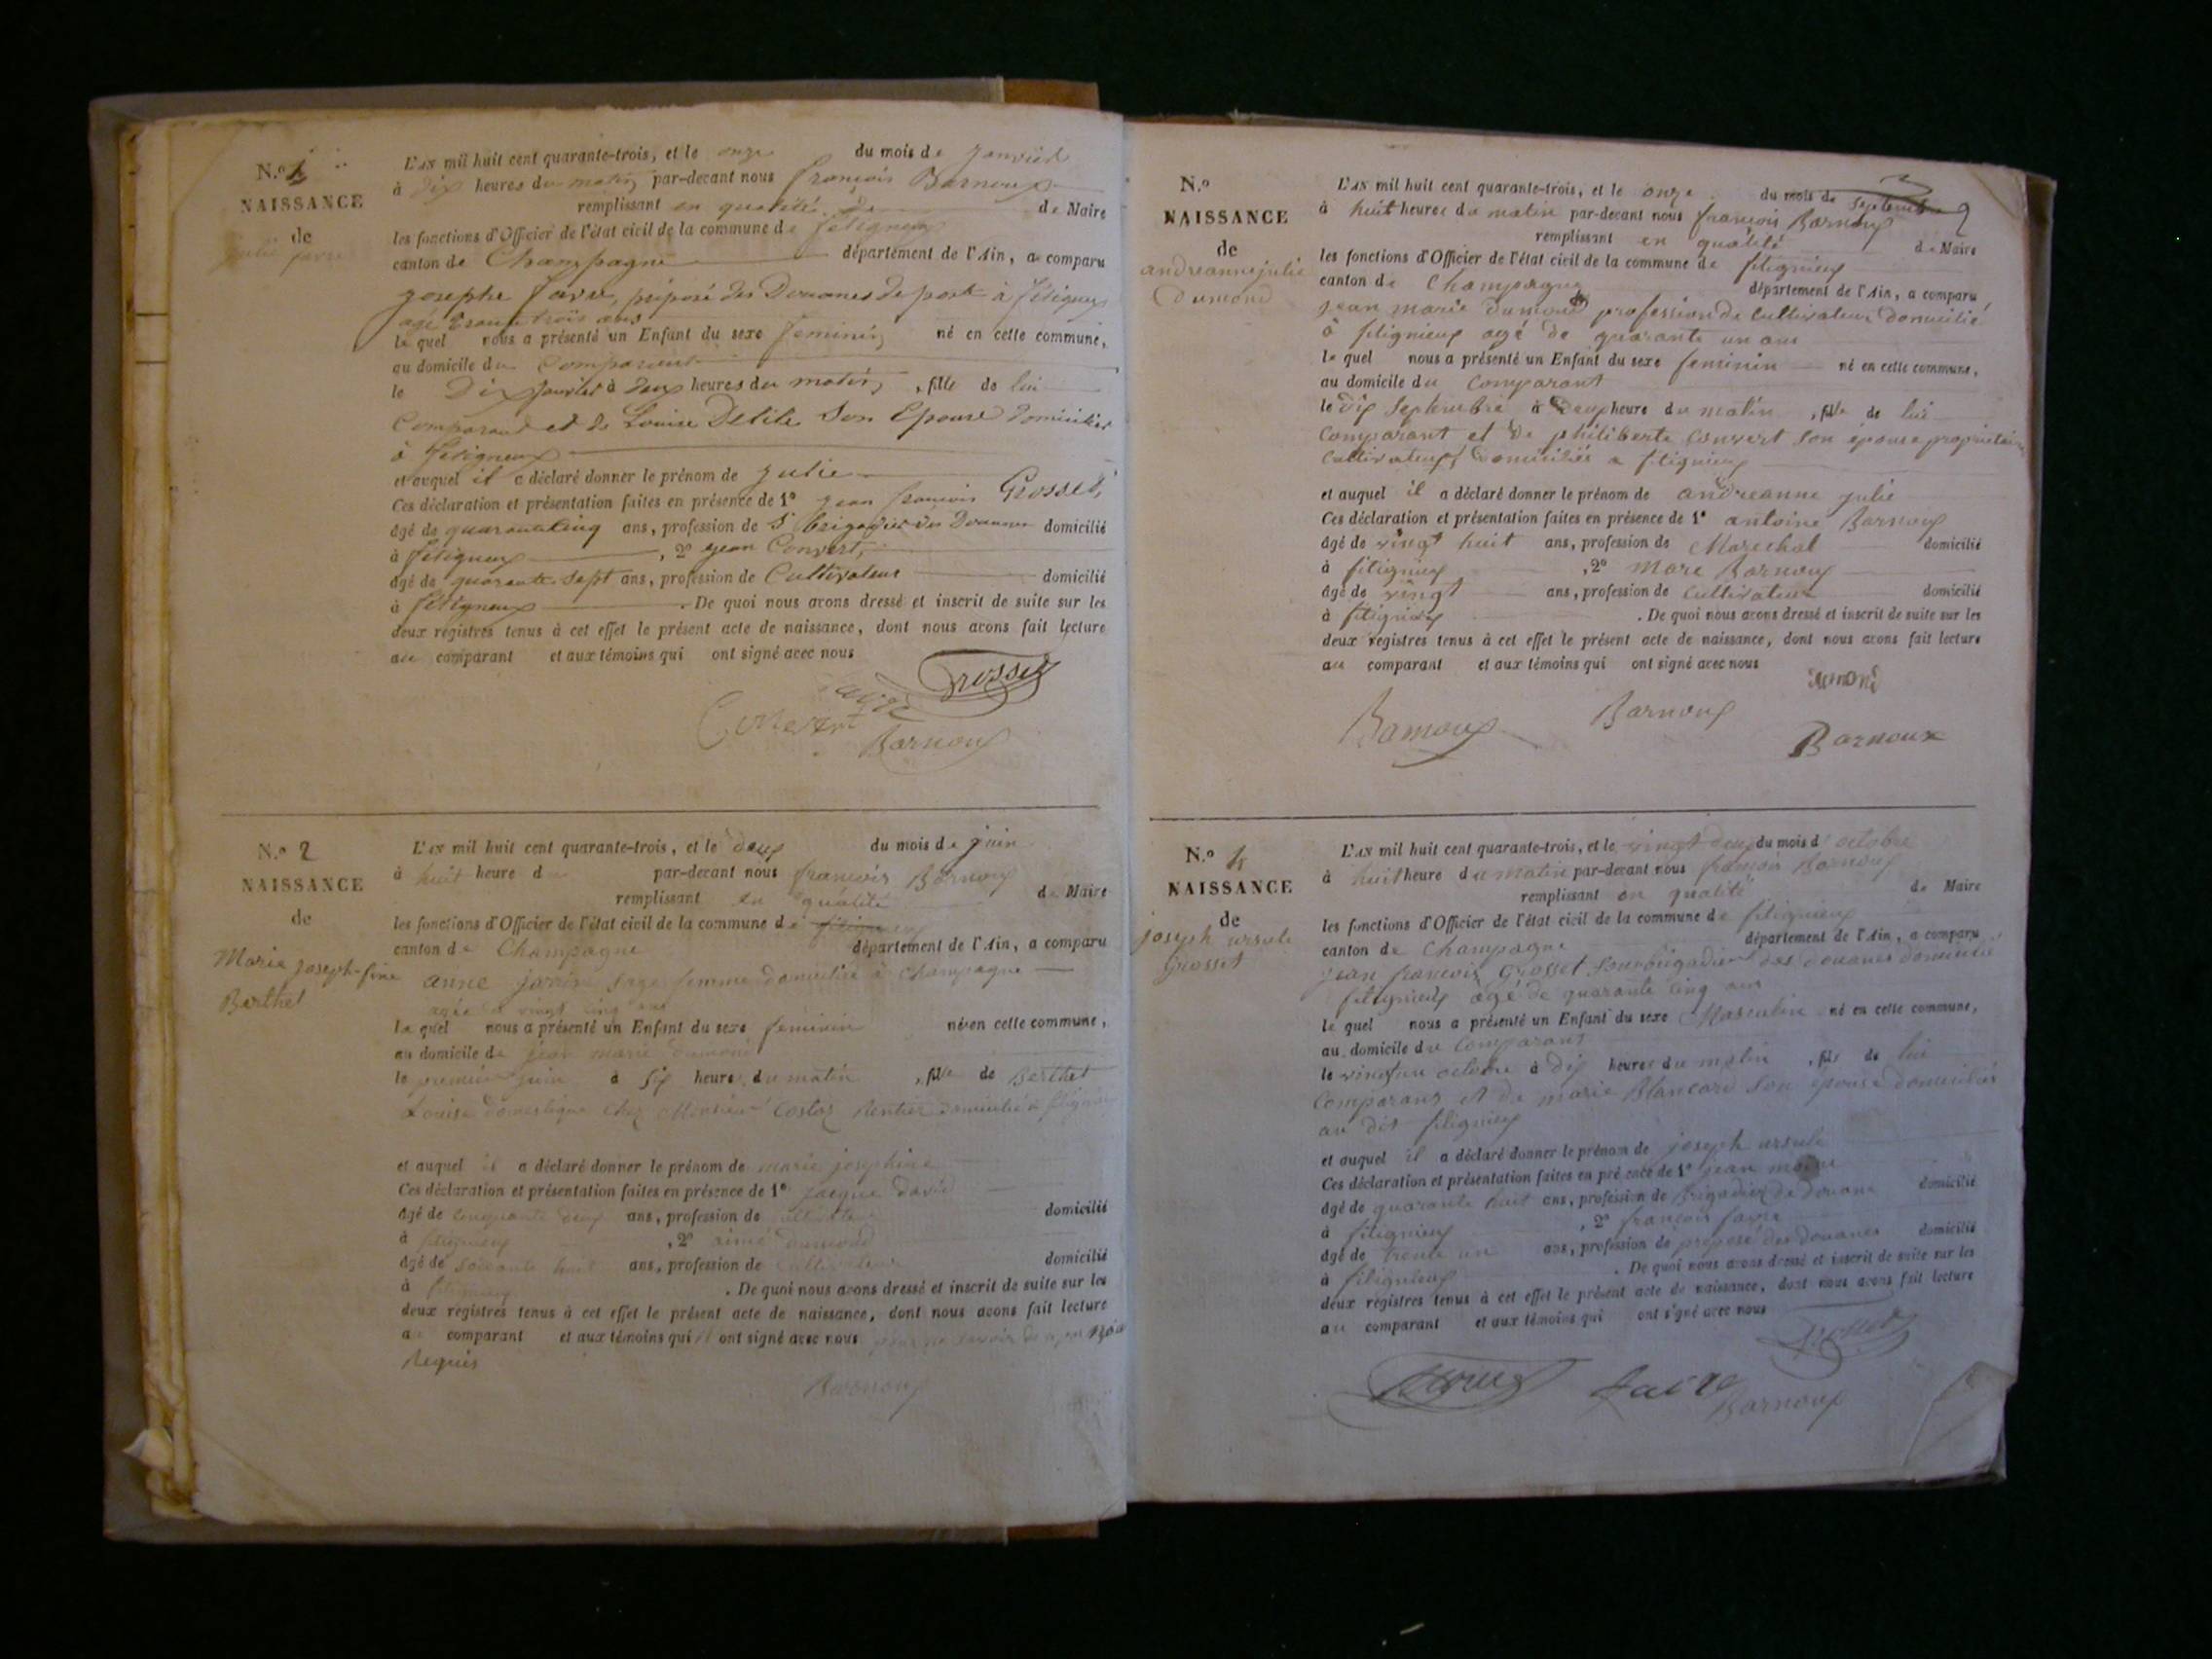 N.º 1
NAISSANCE
de
julie favre
L'AN mil huit cent quarante-trois, et le onze du mois de janvier
à dix heures du matin par-devant nous françois Barnoux
remplissant en qualité de de Maire
les fonctions d'Officier de l'état civil de la commune de fitignieux
canton de Champagne département de l'Ain, a comparu
josephe favre, préposé des Douanes de poste à fitignieux
agé trante trois ans
lequel nous a présenté un Enfant du sexe feminin né en cette commune,
au domicile du Comparant
le Dix janvier à deux heures du matin, fille de lui
Comparant et de Louise Delile Son Epouse domiciliés
à fitignieux
et auquel il a déclaré donner le prénom de julie
Ces déclaration et présentation faites en présence de 1º jean françois Grosset,
âgé de quarante cinq ans, profession de S. brigadier des Douanes domicilié
à fitignieux, 2º jean Convert,
âgé de quarante sept ans, profession de Cultivateur domicilié
à fitignieux. De quoi nous avons dressé et inscrit de suite sur les
deux registres tenus à cet effet le présent acte de naissance, dont nous avons fait lecture
au comparant et aux témoins qui ont signé avec nous
Grosset
favre
Convert
Barnoux
N.º 2
NAISSANCE
de
Marie joseph-fine
Berthet
L'AN mil huit cent quarante-trois, et le deux du mois de juin
à huit heure d par-devant nous francois Barnoux
remplissant en qualité de Maire
les fonctions d'Officier de l'état civil de la commune de
canton de Champagne département de l'Ain, a comparu
anne sage femme domiciliée à Champagne
agée de vingt cinq ans
la quel nous a présenté un Enfant du sexe feminin né en cette commune,
au domicile de jean marie dumond
le premier juin à six heure du matin, fille de Berthet
Louise domestique chez Monsieur Costaz Rentier domicilié à
et auquel il a déclaré donner le prénom de marie josephine
Ces déclaration et présentation faites en présence de 1º jacque david
âgé de cinquante deux ans, profession de cultivateur domicilié
à fitignieux, 2º aimé dumond
âgé de soixante huit ans, profession de Cultivateur domicilié
à fitignieux. De quoi nous avons dressé et inscrit de suite sur les
deux registres tenus à cet effet le présent acte de naissance, dont nous avons fait lecture
a comparant et aux témoins qui ont signé avec nous pour ne savoir de
Requis
Barnoux
N.º
NAISSANCE
de
andreanne julie
Dumond
L'AN mil huit cent quarante-trois, et le onze du mois de septembre
à huit heures du matin par-devant nous françois Barnoux
remplissant en qualité de Maire
les fonctions d'Officier de l'état civil de la commune de fitignieux
canton de Champagne département de l'Ain, a comparu
jean marie Dumond profession de Cultivateur domicilié
à fitignieux agé de quarante un ans
le quel nous a présenté un Enfant du sexe feminin né en cette commune,
au domicile du Comparant
le dix septembre à deux heure du matin, fille de lui
Comparant et de philiberte Convert son épouse propriétaires
Cultivateurs domiciliés a fitignieux
et auquel il a déclaré donner le prénom de andreanne julie
Ces déclaration et présentation faites en présence de 1º antoine Barnoux
âgé de vingt huit ans, profession de Marechal domicilié
à fitignieux, 2º Marc Barnoux
âgé de vingt ans, profession de Cultivateur domicilié
à fitignieux. De quoi nous avons dressé et inscrit de suite sur les
deux registres tenus à cet effet le présent acte de naissance, dont nous avons fait lecture
au comparant et aux témoins qui ont signé avec nous
dumond
Barnoux Barnoux
Barnoux
N.º 4
NAISSANCE
de
joseph ursule
Grosset
L'AN mil huit cent quarante-trois, et le vingt deux du mois d'octobre
à huit heure du matin par-devant nous françois Barnoux
remplissant en qualité de Maire
les fonctions d'Officier de l'état civil de la commune de fitignieux
canton de Champagne département de l'Ain, a comparu
jean francois Grosset sousbrigadier des douanes domicilié
fitignieux agé de quarante cinq ans
le quel nous a présenté un Enfant du sexe Masculin né en cette commune,
au domicile du Comparant
le vingtun octobre à dix heures du matin, fils de lui
Comparans et de marie Blancard son épouse domiciliés
au dit fitignieux
et auquel il a déclaré donner le prénom de joseph ursule
Ces déclaration et présentation faites en présence de 1º jean
âgé de quarante huit ans, profession de Brigadier de douane domicilié
à fitignieux, 2º francois favre
âgé de trente un ans, profession de préposé des douanes domicilié
à fitignieux. De quoi nous avons dressé et inscrit de suite sur les
deux registres tenus à cet effet le présent acte de naissance, dont nous avons fait lecture
au comparant et aux témoins qui ont signé avec nous
Grosset
favre
Barnoux